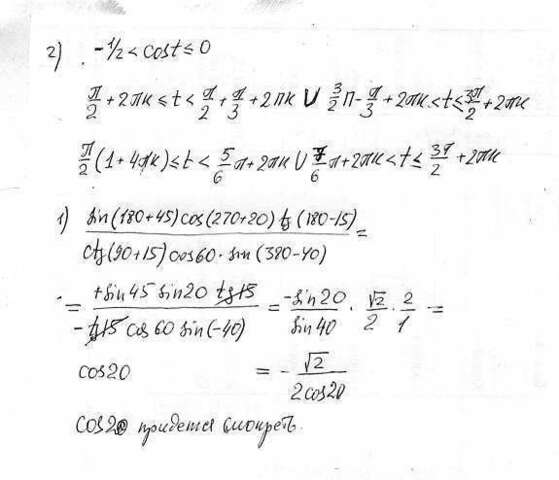 2) -1/2 < cost ≤ 0
π/2 + 2πк ≤ t < π/2 + π/3 + 2πк ∪ 3/2 π - π/3 + 2πк < t ≤ 3π/2 + 2πк
π/2 (1 + 4к) ≤ t < 5/6 π + 2πк ∪ 7/6 π + 2πк < t ≤ 3π/2 + 2πк
1) sin(180+45)cos(270+20) tg(180-15) / ctg(90+15)cos60·sin(380-40) =
= +sin45 sin20 tg15 / -tg15 cos60 sin(-40) = -sin20 / sin40 · √2/2 · 2/1 =
cos20 = - √2 / 2cos20
cos20 придется смотреть.